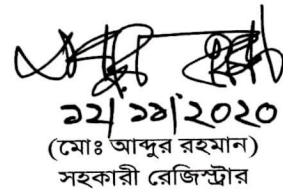 ১২/১১/২০২০
(মোঃ আব্দুর রহমান)
সহকারী রেজিস্ট্রার